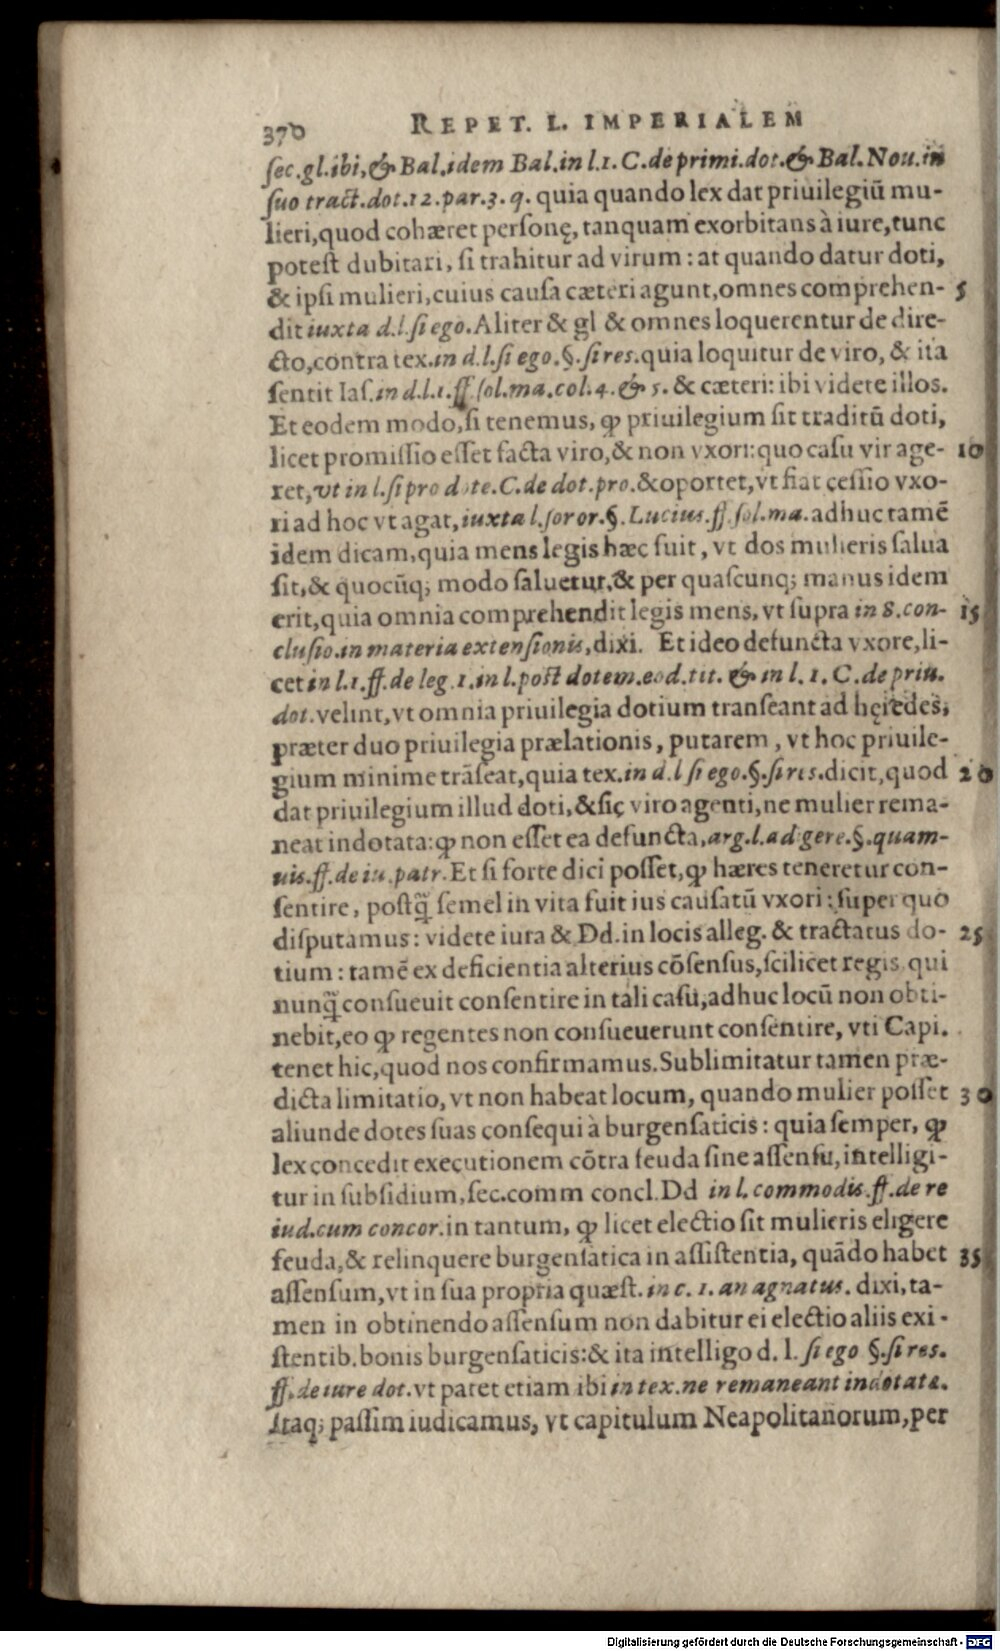 370 REPET. L. IMPERIALEM
ſec.gl.ibi,& Bal.idem Bal.in l.1.C.de primi.dot.& Bal.Nou.in
ſuo tract.dot.12.par.3.q. quia quando lex dat priuilegiū mu-
lieri,quod cohæret perſonę, tanquam exorbitans à iure,tunc
poteſt dubitari, ſi trahitur ad virum : at quando datur doti,
& ipſi mulieri,cuius cauſa cæteri agunt,omnes comprehen- 5
dit iuxta d.l.ſi ego. Aliter & gl & omnes loquerentur de dire-
cto,contra tex.in d.l.ſi ego.§.ſi res.quia loquitur de viro, & ita
ſentit Iaſ.in d.l.1.ff.ſol.ma.col.4.& 5. & cæteri: ibi videte illos.
Et eodem modo,ſi tenemus, ꝙ priuilegium ſit traditū doti,
licet promiſſio eſſet facta viro,& non vxori:quo caſu vir age- 10
ret,vt in l.ſi pro dote.C.de dot.pro.&oportet,vt fiat ceſſio vxo-
ri ad hoc vt agat,iuxta l.ſoror.§.Lucius.ff.ſol.ma. adhuc tamē
idem dicam,quia mens legis hæc fuit, vt dos mulieris ſalua
ſit,& quocūq; modo ſaluetur,& per quaſcunq; manus idem
erit,quia omnia comprehendit legis mens, vt ſupra in 8.con- 15
cluſio.in materia extenſionis,dixi. Et ideo defuncta vxore,li-
cet in l.1.ff.de leg.1.in l.poſt dotem.eod.tit. & in l. 1. C. de priu.
dot.velint,vt omnia priuilegia dotium tranſeant ad hęredes,
præter duo priuilegia prælationis, putarem, vt hoc priuile-
gium minime trāſeat,quia tex.in d.l ſi ego.§.ſi res.dicit,quod 20
dat priuilegium illud doti,&ſic viro agenti,ne mulier rema-
neat indotata:ꝙ non eſſet ea defuncta,arg.l.ad gere.§.quam-
uis.ff.de iu.patr.Et ſi forte dici poſſet,ꝙ hæres teneretur con-
ſentire, poſtq̃ ſemel in vita fuit ius cauſatū vxori : ſuper quo
diſputamus : videte iura & Dd.in locis alleg. & tractatus do- 25
tium : tamē ex deficientia alterius cōſenſus,ſcilicet regis qui
nunq̃ conſueuit conſentire in tali caſu,adhuc locū non obti-
nebit,eo ꝙ regentes non conſueuerunt conſentire, vti Capi.
tenet hic,quod nos confirmamus.Sublimitatur tamen præ-
dicta limitatio, vt non habeat locum, quando mulier poſſet 30
aliunde dotes ſuas conſequi à burgenſaticis : quia ſemper, ꝙ
lex concedit executionem cōtra feuda ſine aſſenſu, intelligi-
tur in ſubſidium,ſec.comm concl.Dd in l.commodis.ff.de re
iud.cum concor.in tantum, ꝙ licet electio ſit mulieris eligere
feuda,& relinquere burgenſatica in aſſiſtentia, quādo habet 35
aſſenſum,vt in ſua propria quæſt.in c. 1. an agnatus. dixi, ta-
men in obtinendo aſſenſum non dabitur ei electio aliis exi-
ſtentib.bonis burgenſaticis:& ita intelligo d. l. ſi ego §.ſi res.
ff.de iure dot.vt patet etiam ibi in tex.ne remaneant indotatæ.
Itaq; paſſim iudicamus, vt capitulum Neapolitanorum,per
Digitalisierung gefördert durch die Deutsche Forschungsgemeinschaft - DFG